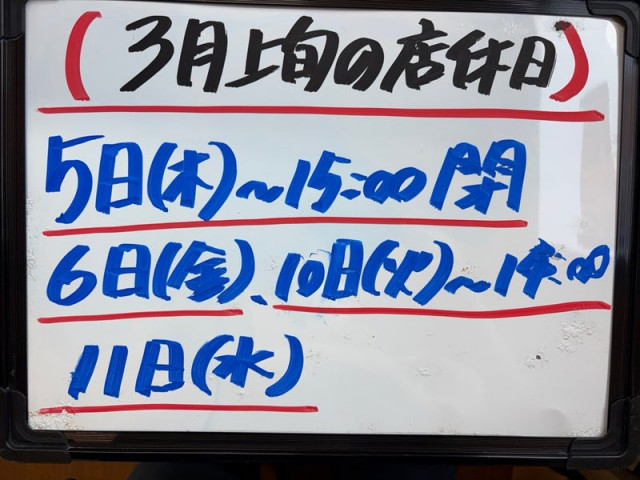 (3月上旬の店休日)
5日(木)~15:00閉
6日(金)、10日(火)~14:00
11日(水)